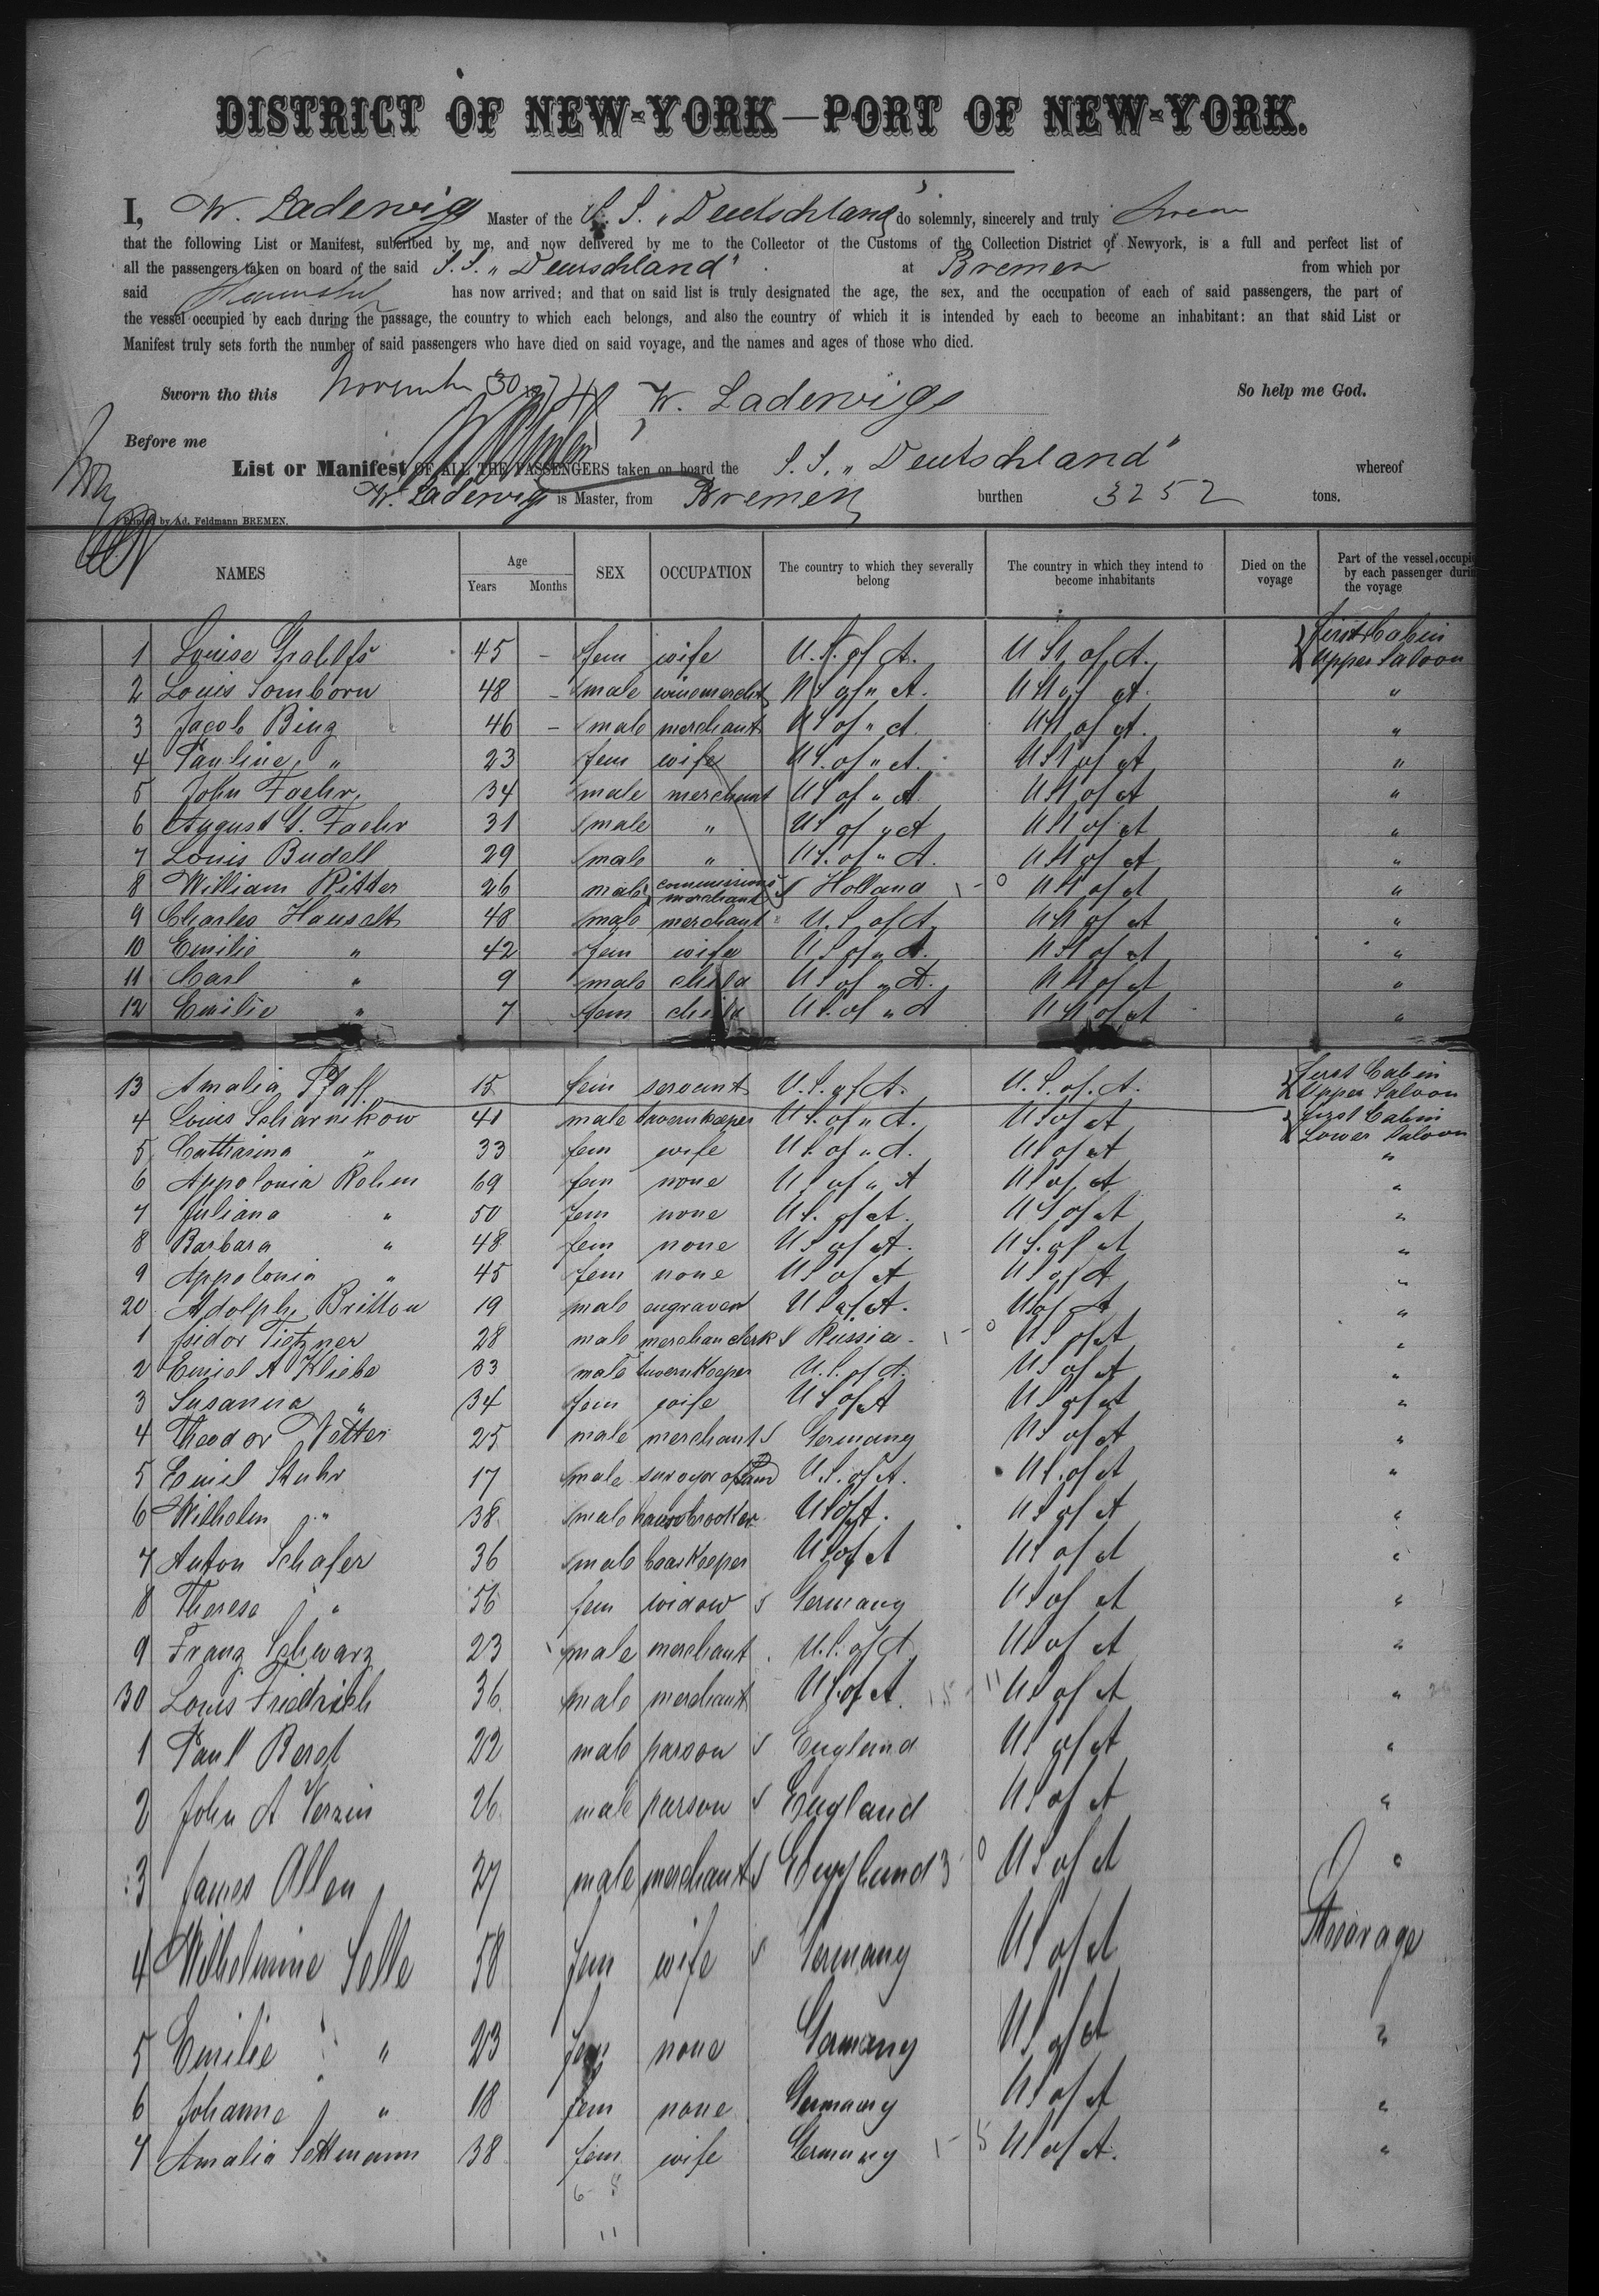 DISTRICT OF NEW-YORK—PORT OF NEW-YORK.
I, W. Ladewigs Master of the S. S. „Deutschland" do solemnly, sincerely and truly swear
that the following List or Manifest, subcribed by me, and now delivered by me to the Collector ot the Customs of the Collection District of Newyork, is a full and perfect list of
all the passengers taken on board of the said S. S. „Deutschland" at Bremen from which por
said has now arrived; and that on said list is truly designated the age, the sex, and the occupation of each of said passengers, the part of
the vessel occupied by each during the passage, the country to which each belongs, and also the country of which it is intended by each to become an inhabitant: an that said List or
Manifest truly sets forth the number of said passengers who have died on said voyage, and the names and ages of those who died.
Sworn tho this November 30 1874 W. Ladewigs So help me God.
Before me
List or Manifest OF ALL THE PASSENGERS taken on board the S. S. „Deutschland" whereof
W. Ladewigs is Master, from Bremen burthen 3252 tons.
Printed by Ad. Feldmann BREMEN.
NAMES Age Years Months SEX OCCUPATION The country to which they severally belong The country in which they intend to become inhabitants Died on the voyage Part of the vessel occupi by each passenger durin the voyage
1 Louise 45 - fem wife U. S. of A. U St of A. First Cabin Upper Saloon
2 Louis Somborn 48 - male winemercht U S of " A. U St of A. "
3 Jacob Bing 46 - male merchant U S of " A. U St of A. "
4 Pauline " 23 fem wife U S. of " A. U St of A "
5 John Faehr 34 male merchant U S of " A U St of A "
6 August G. Faehr 31 male " U S of " A U St of A "
7 Louis Budell 29 male " U S. of " A. U St of A "
8 William Ritter 26 male commissions merchant Holland U St of A "
9 Charles Hauselt 48 male merchant U. S. of A U St of A "
10 Emilie " 42 fem wife U S of " A. U St of A "
11 Carl " 9 male child U S of " A. U St of A "
12 Emilie " 7 fem child U S. of " A U St of A "
13 Amalia Pfaff 15 fem servant U. S. of A. U. S. of. A. First Cabin Upper Saloon
4 Louis Scharnikow 41 male tavernkeeper U S. of " A. U S of A First Cabin Lower Saloon
5 Catharina " 33 fem wife U S. of " A. U S of A "
6 Appolonia Rohen 69 fem none U S of " A U S of A "
7 Juliana " 50 fem none U S. of A. U S of A "
8 Barbara " 48 fem none U S of A. U S. of A "
9 Appolonia " 45 fem none U S of A U S of A "
20 Adolph Britton 19 male engraver U S of A. U S of A "
1 Isidor Tietzner 28 male merchan clerk S Russia U S of A "
2 Emiel A Kliebe 33 male tavernkeeper U. S. of A. U S of A "
3 Susanna " 34 fem wife U S of A U S of A "
4 Theodor Vetter 25 male merchant S Germany U S of A "
5 Emiel Stuhr 17 male surveyor of land U. S. of A. U S. of A "
6 Wilhelm " 38 male U S of A. U S of A "
7 Anton Schafer 36 male U S of A U S of A "
8 Therese " 56 fem widow S Germany U S of A "
9 Franz Schwarz 23 male merchant U. S. of A U S of A "
30 Louis Friedrich 36 male merchant U S. of A. U S of A "
1 Paul Beret 22 male parson S England U S of A "
2 John A 26 male parson S England U S of A "
3 James Allen 27 male merchant S England U S of A "
4 Wilhelmine Selle 58 fem wife S Germany U S of A Steerage
5 Emilie " 23 fem none Germany U S of A "
6 Johanne " 18 fem none Germany U S of A "
7 Amalia Settmann 38 fem wife Germany U S of A. "